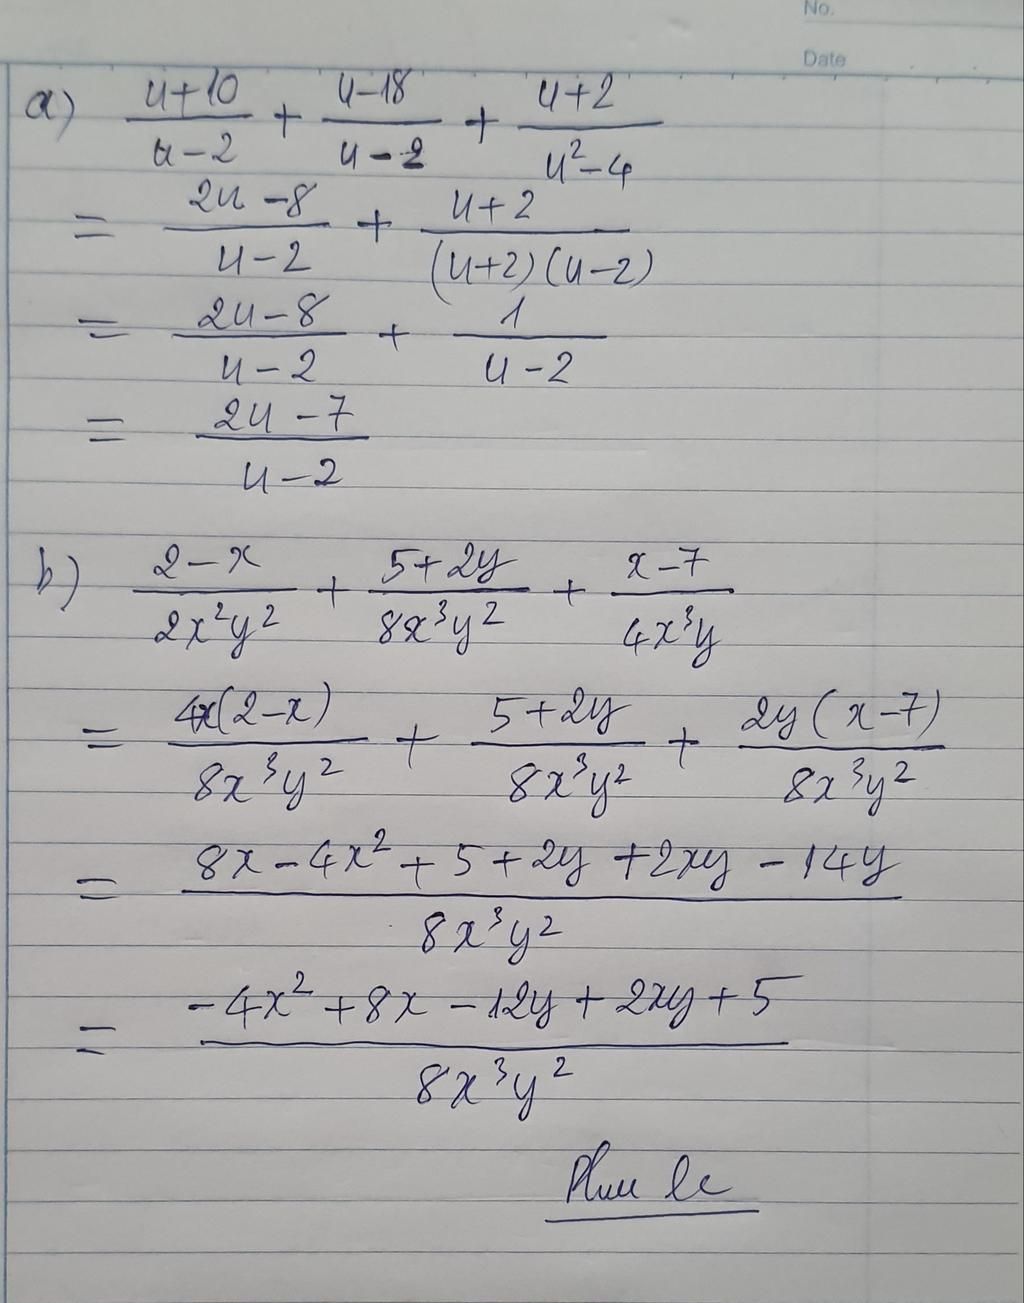 No.
Date
a) \frac{u+10}{u-2} + \frac{u-18}{u-2} + \frac{u+2}{u^2-4}
= \frac{2u-8}{u-2} + \frac{u+2}{(u+2)(u-2)}
= \frac{2u-8}{u-2} + \frac{1}{u-2}
= \frac{2u-7}{u-2}
b) \frac{2-x}{2x^2y^2} + \frac{5+2y}{8x^3y^2} + \frac{x-7}{4x^3y}
= \frac{4x(2-x)}{8x^3y^2} + \frac{5+2y}{8x^3y^2} + \frac{2y(x-7)}{8x^3y^2}
= \frac{8x-4x^2+5+2y+2xy-14y}{8x^3y^2}
= \frac{-4x^2+8x-12y+2xy+5}{8x^3y^2}